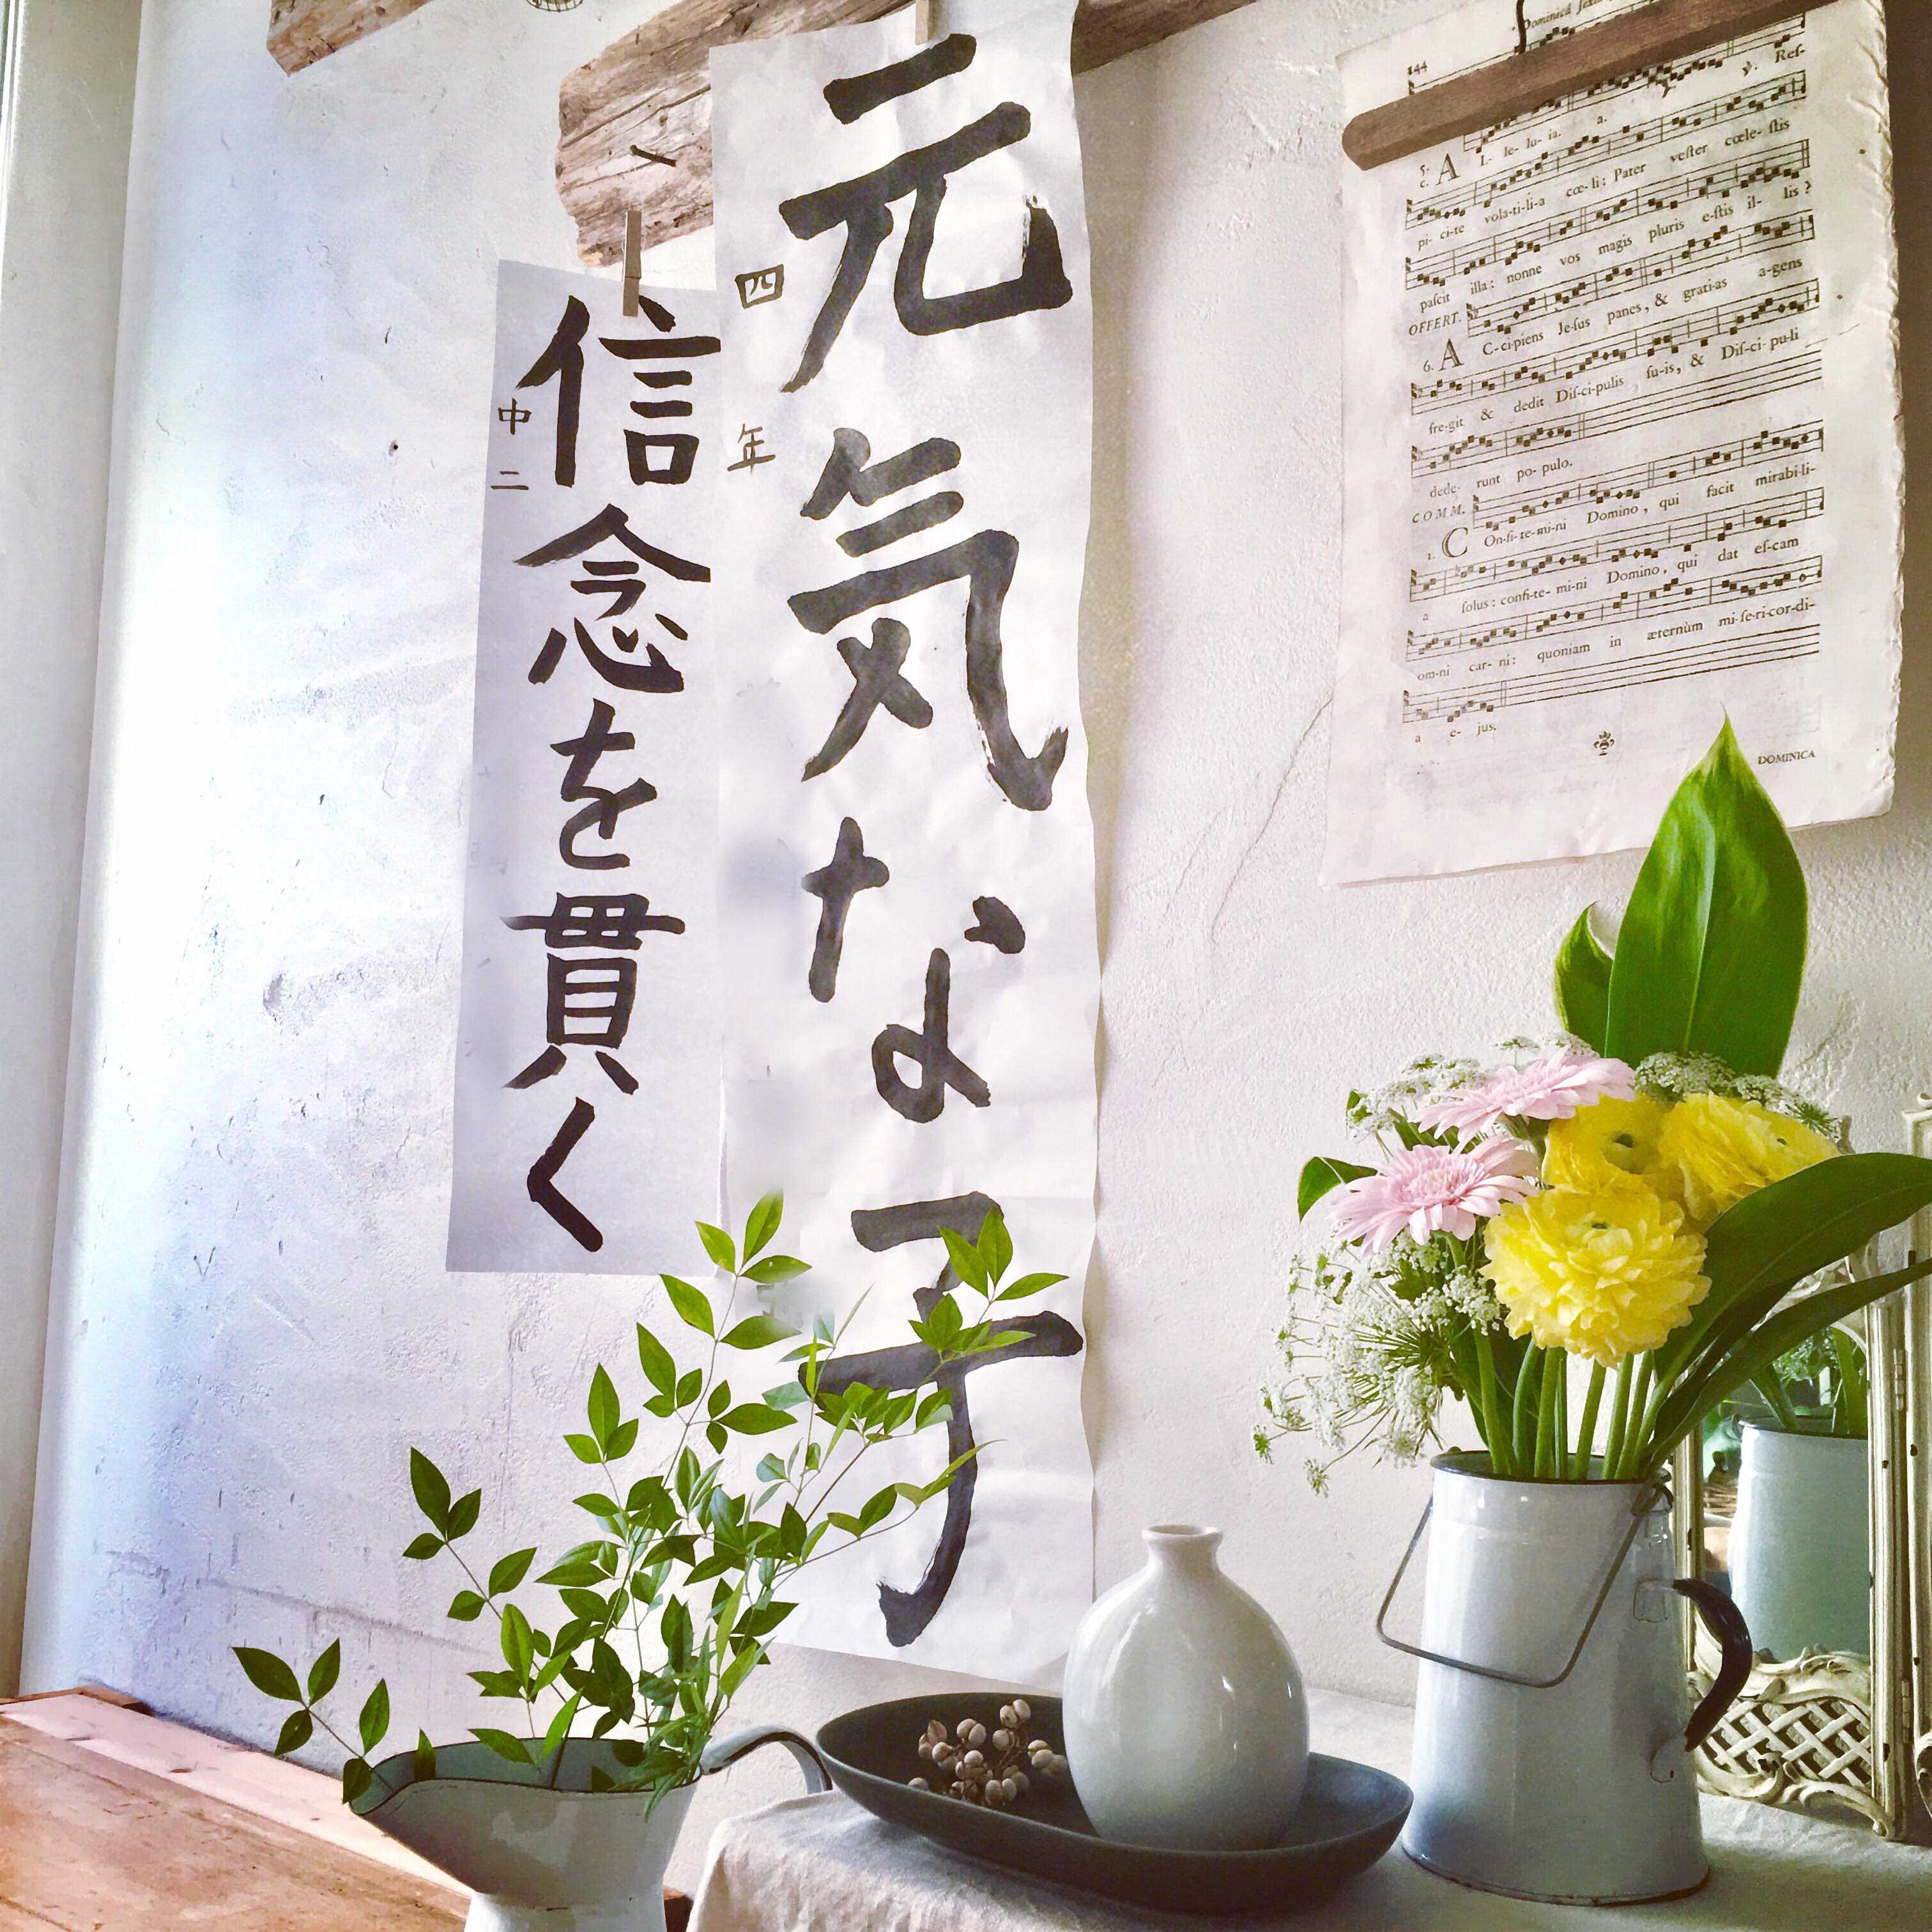 元気な子
四年
信念を貫く
中二
144
Dominica sext
℣. Ref-
5. c. AL- le- lu- ia. a.
pi- ci-te vola-ti-li-a cœ-li: Pater veſter cœle- ſtis
paſcit illa: nonne vos magis pluris e-ſtis il- lis?
OFFERT. 6. AC-ci-piens Je-ſus panes, & grati-as a-gens
fre-git & dedit Diſ-ci-pulis ſu-is, & Diſ-ci-pu-li
dede- runt po- pulo.
COMM. 1. COn-fi-te-mi-ni Domino, qui facit mirabi-li-
a ſolus: confi-te- mi-ni Domino, qui dat eſ-cam
om-ni car- ni: quoniam in æternùm mi-ſe-ri-cor-di-
a e- jus.
DOMINICA